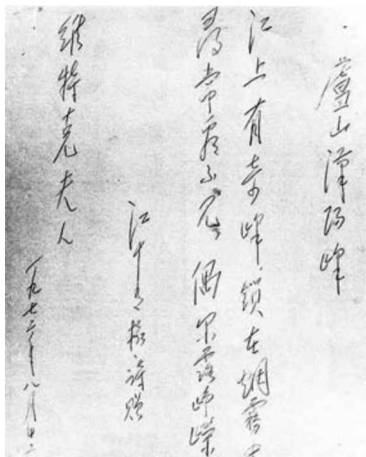 廬山漢阳峰
江上有奇峰,锁在烟霧中
尋常看不见 偶尔露峥嵘
江青 诗赠
维特克夫人
一九七二年八月